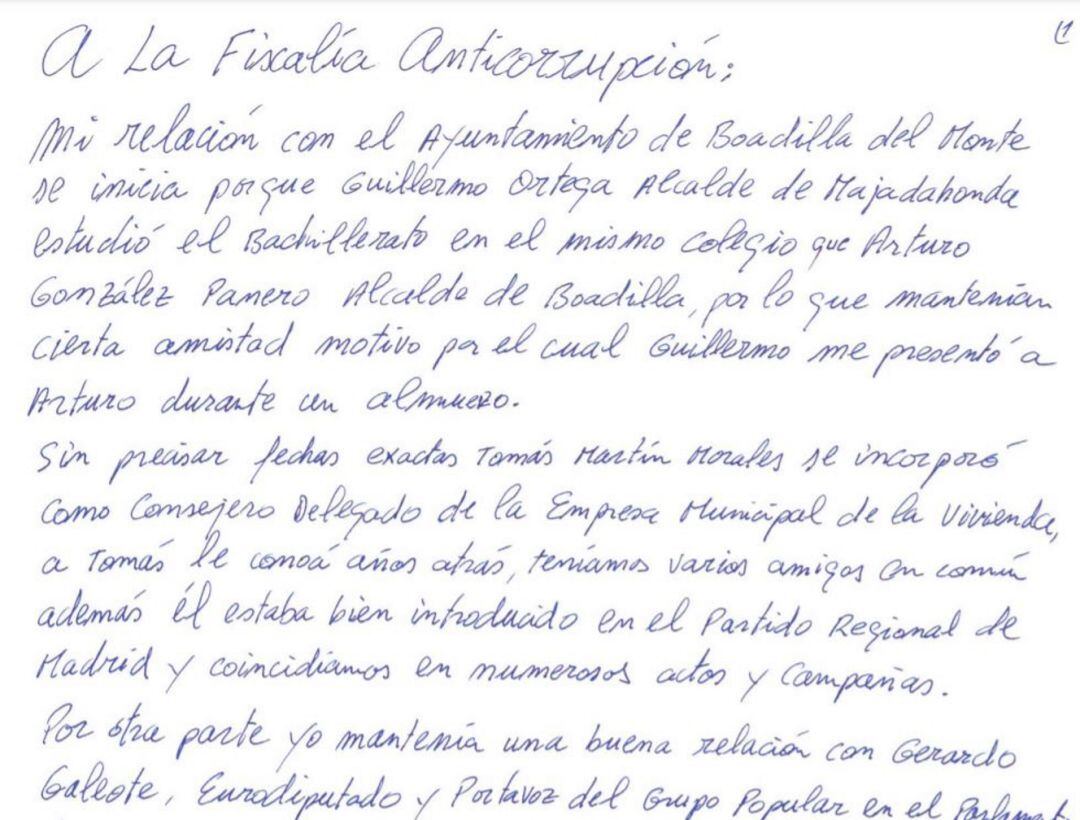 (1
A La Fiscalía Anticorrupción:
Mi relación con el Ayuntamiento de Boadilla del Monte
se inicia porque Guillermo Ortega Alcalde de Majadahonda
estudió el Bachillerato en el mismo colegio que Arturo
González Panero Alcalde de Boadilla, por lo que mantenían
cierta amistad motivo por el cual Guillermo me presentó a
Arturo durante un almuerzo.
Sin precisar fechas exactas Tomás Martín Morales se incorporó
como Consejero Delegado de la Empresa Municipal de la Vivienda,
a Tomás le conocí años atrás, teníamos varios amigos en común
además él estaba bien introducido en el Partido Regional de
Madrid y coincidíamos en numerosos actos y Campañas.
Por otra parte yo mantenía una buena relación con Gerardo
Galeote, Eurodiputado y Portavoz del Grupo Popular en el